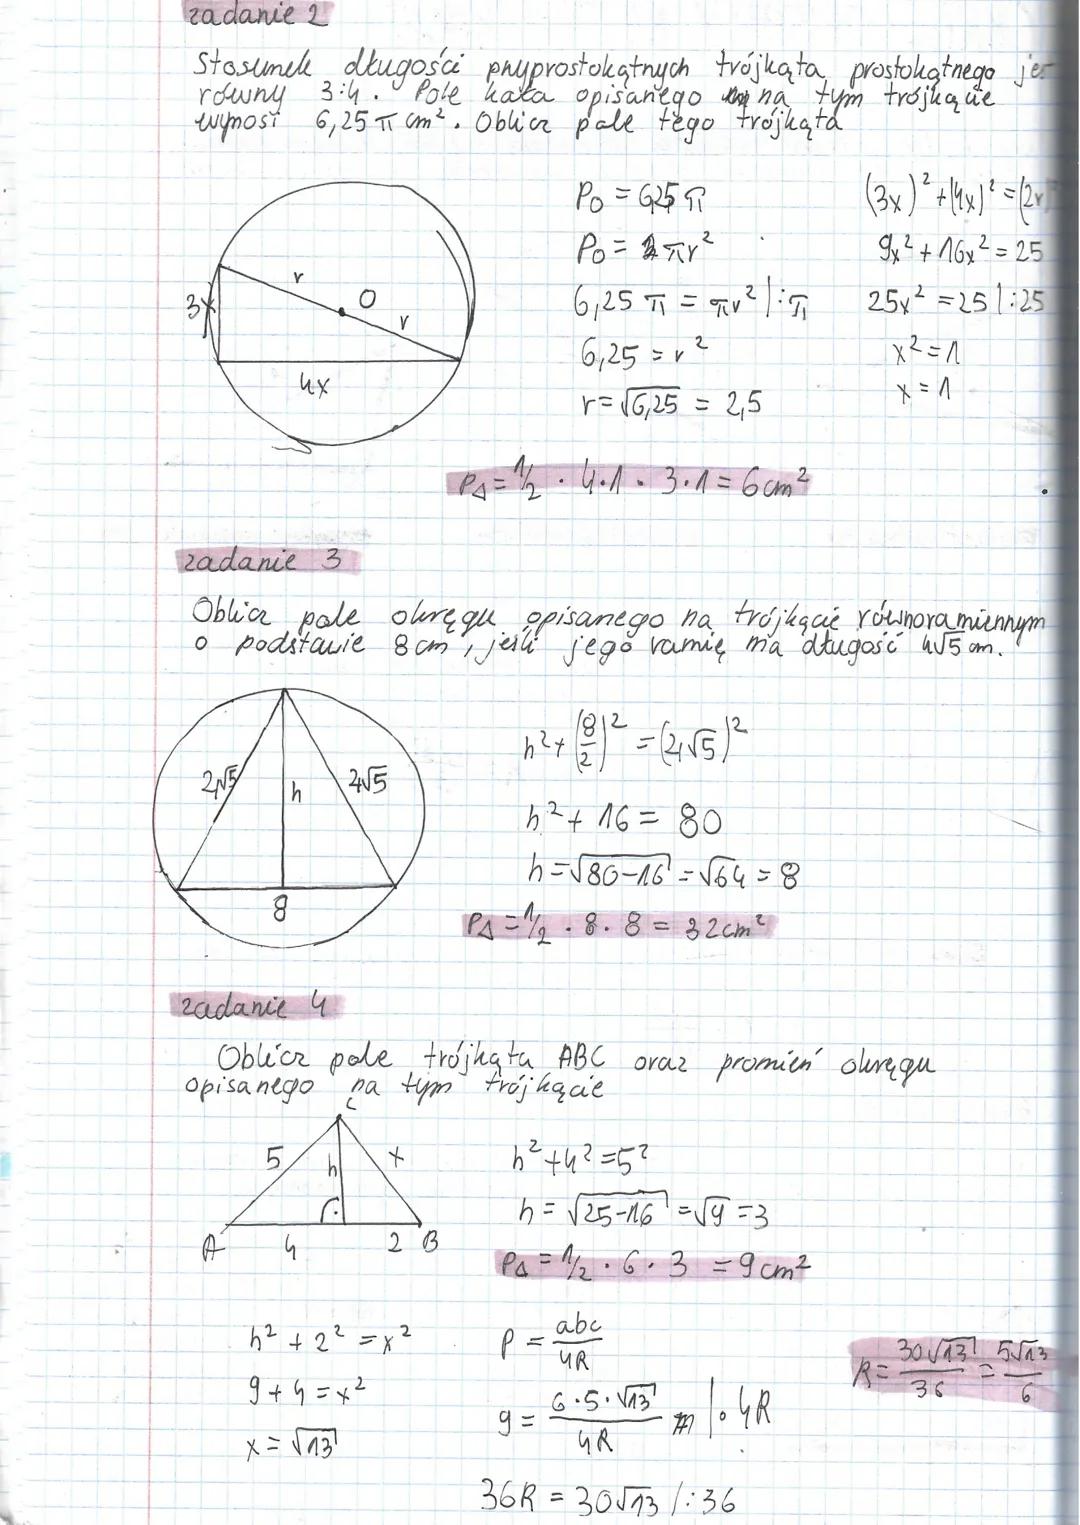 zadanie 2
Stosunek długości przyprostokątnych trójkąta prostokątnego jes
równy 3:4. Pole koła opisanego na tym trójkącie
wynosi 6,25 π cm². Oblicz pole tego trójkąta
3x
r
O
r
4x
P₀ = 6,25 π
P₀ = πr²
6,25 π = πr² |:π
6,25 = r²
r = √6,25 = 2,5
(3x)² + (4x)² = (2r)²
9x² + 16x² = 25
25x² = 25 |:25
x² = 1
x = 1
P△ = 1/2 · 4·1 · 3·1 = 6 cm²
zadanie 3
Oblicz pole okręgu opisanego na trójkącie równoramiennym
o podstawie 8 cm, jeśli jego ramię ma długość 4√5 cm.
4√5
h
4√5
8
h² + (8/2)² = (4√5)²
h² + 16 = 80
h = √80-16 = √64 = 8
P△ = 1/2 · 8 · 8 = 32 cm²
zadanie 4
Oblicz pole trójkąta ABC oraz promień okręgu
opisanego na tym trójkącie
C
5
h
x
A
4
2
B
h² + 4² = 5²
h = √25-16 = √9 = 3
P△ = 1/2 · 6 · 3 = 9 cm²
h² + 2² = x²
9 + 4 = x²
x = √13
P = abc/4R
9 = 6·5·√13/4R |· 4R
36R = 30√13 /:36
R = 30√13/36 = 5√13/6